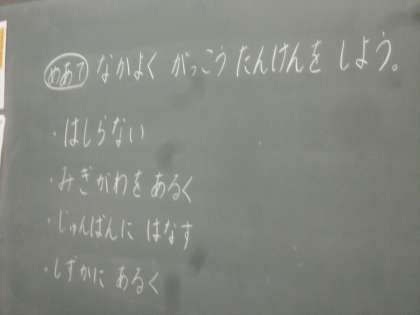 めあて なかよく がっこう たんけんを しよう。
・はしらない
・みぎがわを あるく
・じゅんばんに はなす
・しずかに あるく